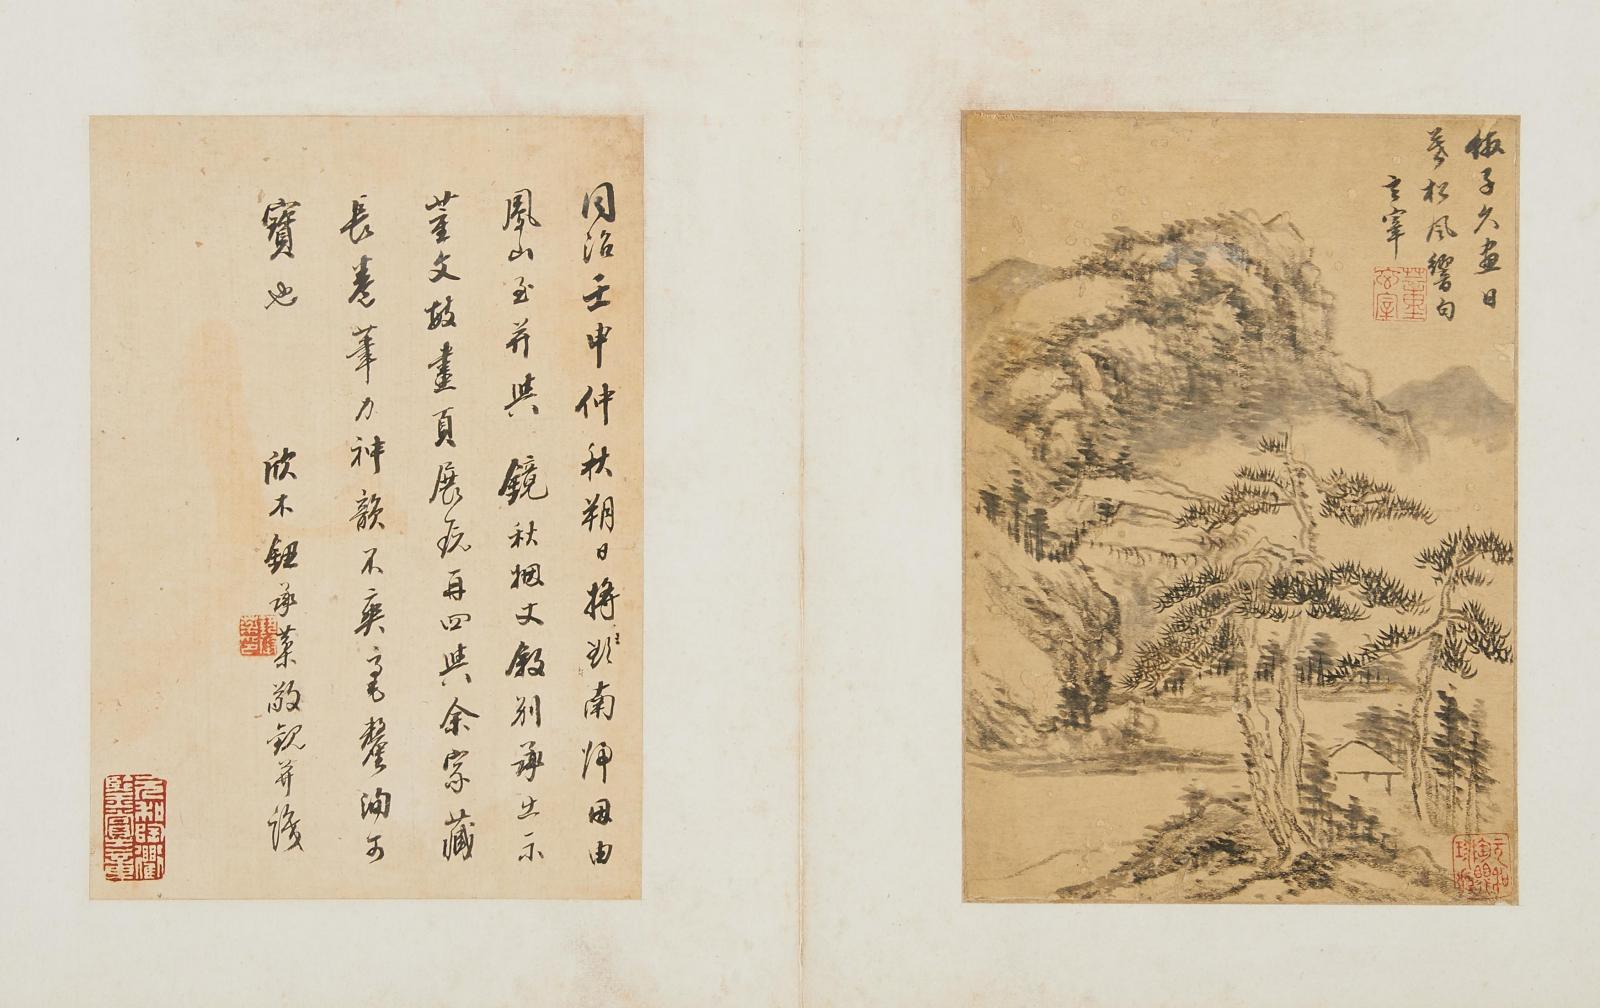 倣子久畫日
暮松風響句
玄宰
同治壬申仲秋朔日將歸南歸由
鳳山至并與 鏡秋姻丈敘別承出示
董文敏畫頁展玩再四與余家藏
長卷筆力神韻不爽毫釐洵可
寶也
欣木鈕承葉敬觀并識